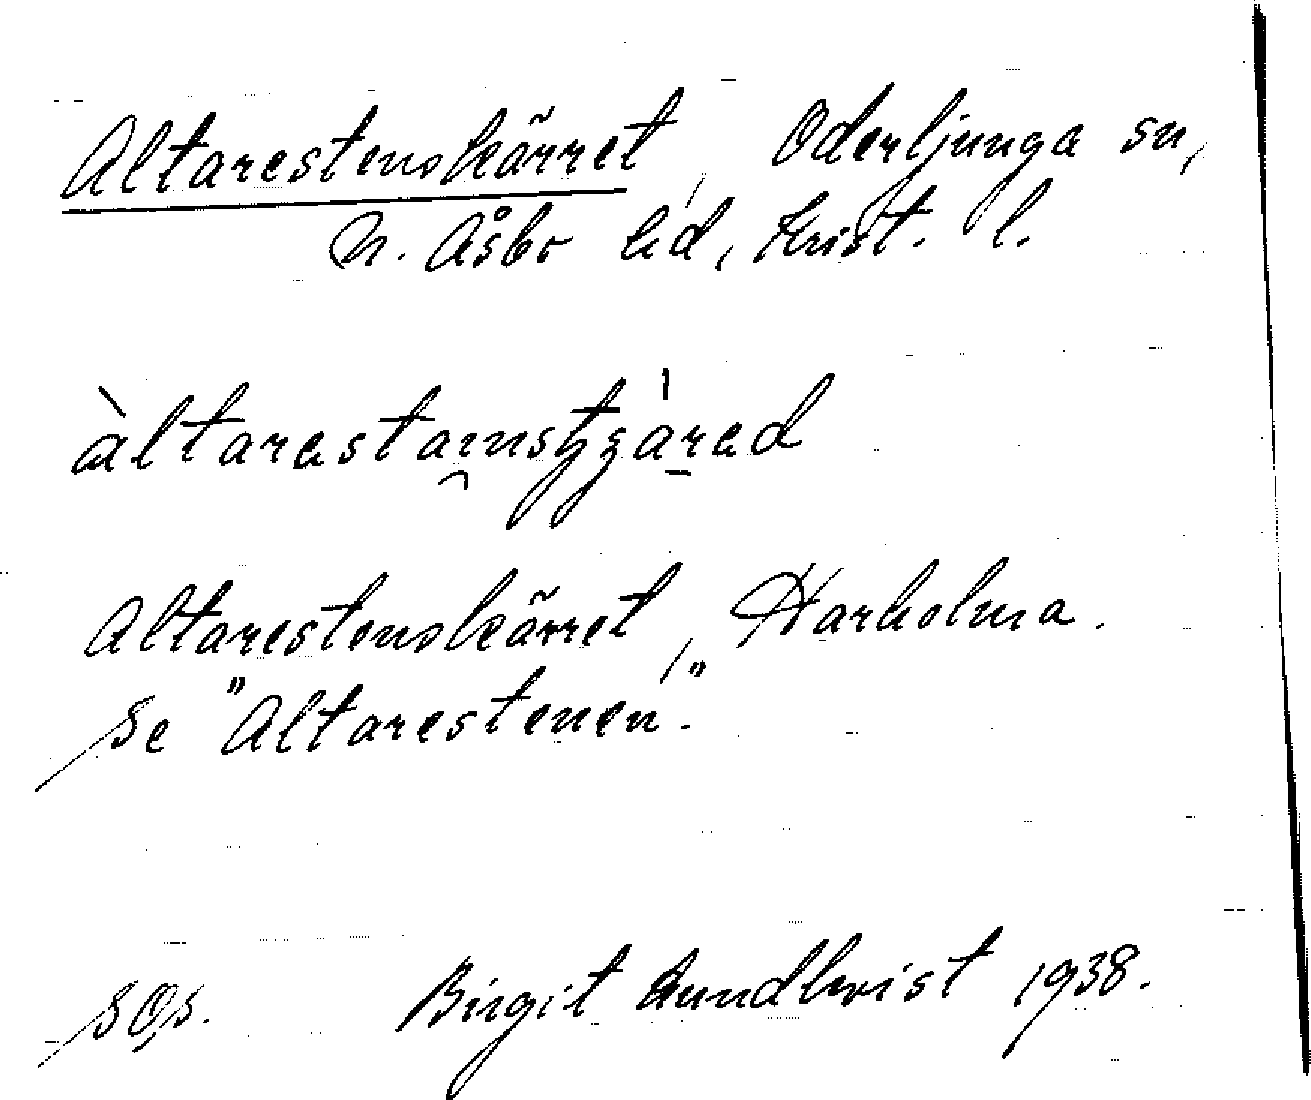 Altarestenskärret, Oderljunga sn,
N. Åsbo hd, Krist. l.
Altarestenskärret, Harholma.
Se "Altarestenen".
SOs. Birgit Lundkvist 1938.